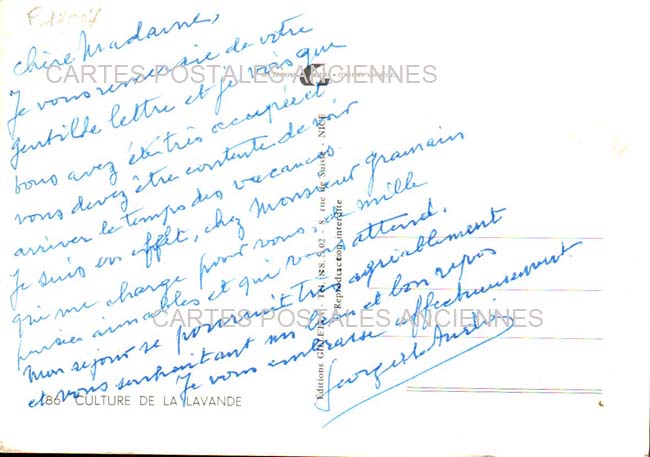 F.12004
Chère Madame,
Je vous remercie de votre
gentille lettre et je vois que
vous avez été très occupée et
vous devez être contente de voir
arriver le temps des vacances.
Je suis en effet, chez Monsieur Gramain
qui me charge pour vous, de mille
pensées aimables et qui vous attend.
Mon séjour se poursuit très agréablement
et vous souhaitant un bon et bon repos
Je vous embrasse affectueusement.
CARTES POSTALES ANCIENNES
CARTES POSTALES ANCIENNES
Editions GILETTA - 8, rue de Suisse - NICE
Reproduction interdite
86 CULTURE DE LA LAVANDE